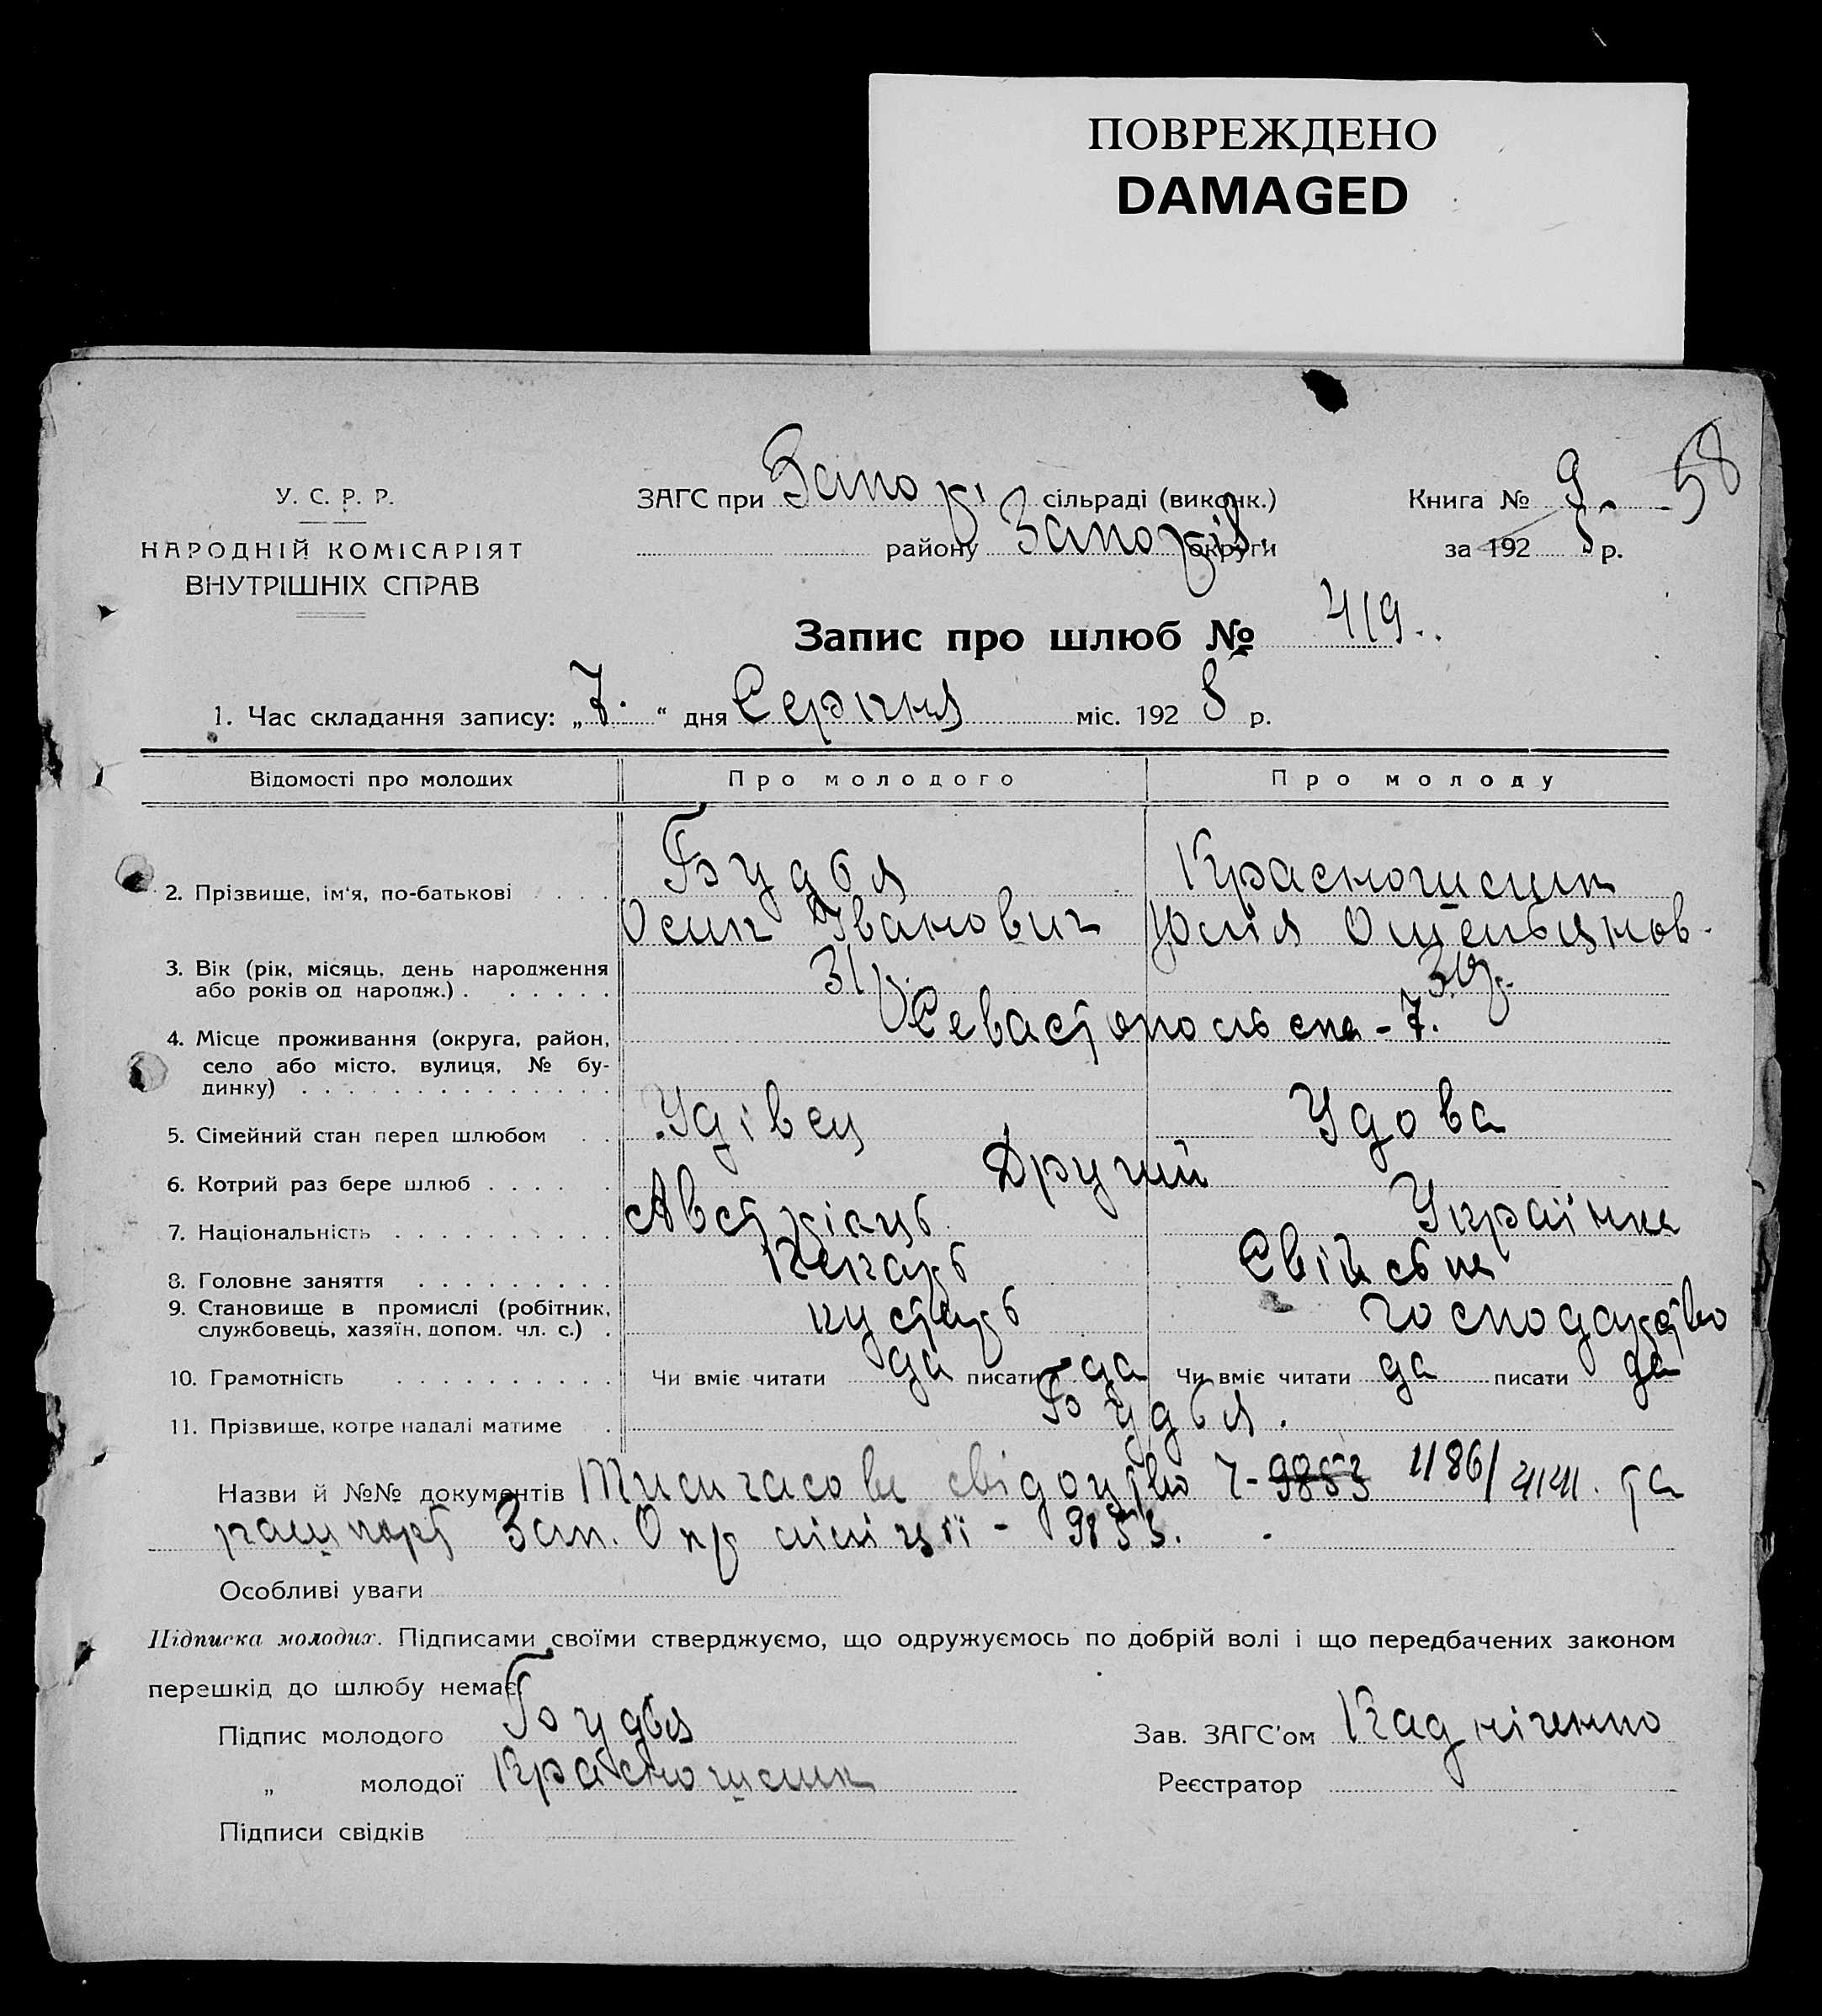 ПОВРЕЖДЕНО
DAMAGED
58
У. С. Р. Р.
НАРОДНІЙ КОМІСАРІЯТ
ВНУТРІШНІХ СПРАВ
ЗАГС при Запор. сільраді (виконк.)
району Запоріз. округи
Книга № 9
за 192 8 р.
Запис про шлюб № 419.
1. Час складання запису: „7.“ дня Серпня міс. 192 8 р.
Відомості про молодих Про молодого Про молоду
2. Прізвище, ім'я, по-батькові Будья Красношлик
Осип Іванович Юлія Омельянов.
3. Вік (рік, місяць, день народження або років од народж.) 31 р. 30 р.
4. Місце проживання (округа, район, село або місто, вулиця, № будинку) Севастопольска - 7.
5. Сімейний стан перед шлюбом Удівец Удова
6. Котрий раз бере шлюб Другий
7. Національність Австріець Українка
8. Головне заняття Пекарь Свійська
9. Становище в промислі (робітник, службовець, хазяїн, допом. чл. с.) кустарь господарство
10. Грамотність Чи вміє читати да писати да Чи вміє читати да писати да
11. Прізвище, котре надалі матиме Будья.
Назви й №№ документів Тимчасове свідоцтво 7-9853 1186/4141. та
пашпорт Зап. Окр міліціі - 9853.
Особливі уваги
Підписка молодих. Підписами своїми стверджуємо, що одружуємось по добрій волі і що передбачених законом
перешкід до шлюбу немає.
Підпис молодого Будья
„ молодої Красношлик
Підписи свідків
Зав. ЗАГС'ом
Реєстратор